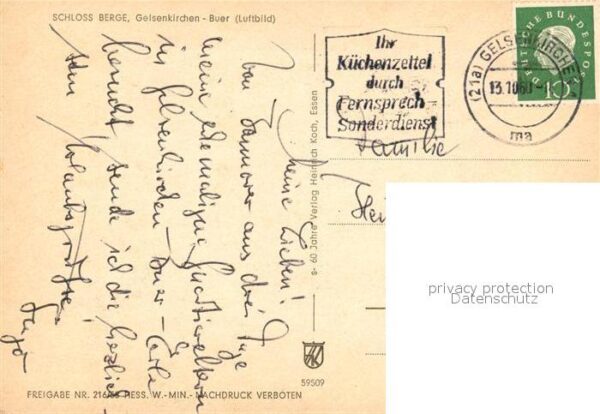 SCHLOSS BERGE, Gelsenkirchen - Buer (Luftbild)
Ihr
Küchenzettel
durch
Fernsprech-
Sonderdienst
(21a) GELSENKIRCHEN
13.10.60
ma
DEUTSCHE BUNDESPOST
10
Familie
Meine Lieben!
Von Hannover aus drei Tage
meine ehemaligen
in Gelsenkirchen-Buer-Erle
besucht, sende ich die herzlich-
sten Urlaubsgrüße.
60 Jahre Verlag Heinrich Koch, Essen
59509
FREIGABE NR. HESS. W.-MIN.- NACHDRUCK VERBOTEN
privacy protection
Datenschutz